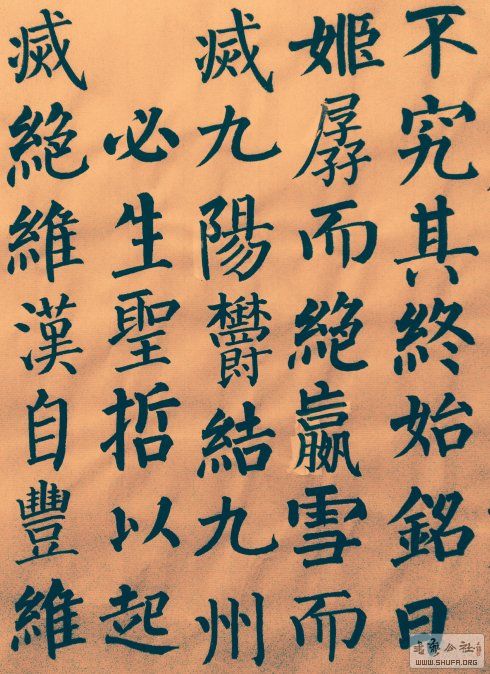 不究其終始銘曰
姬孱而絕嬴雪而
滅九陽鬱結九州
必生聖哲以起
滅絕維漢自豐維
WWW.SHUFA.ORG